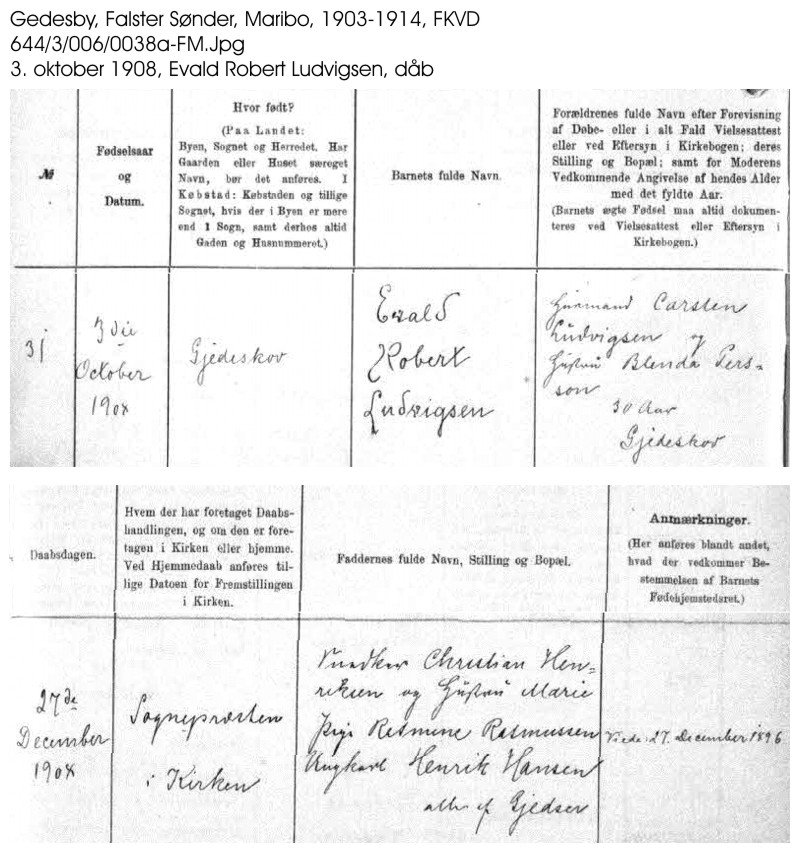 Gedesby, Falster Sønder, Maribo, 1903-1914, FKVD
644/3/006/0038a-FM.Jpg
3. oktober 1908, Evald Robert Ludvigsen, dåb
№
Fødselsaar
og
Datum.
Hvor født?
(Paa Landet:
Byen, Sognet og Herredet. Har
Gaarden eller Huset særeget
Navn, bør det anføres. I
Købstad: Købstaden og tillige
Sognet, hvis der i Byen er mere
end 1 Sogn, samt derhos altid
Gaden og Husnummeret.)
Barnets fulde Navn.
Forældrenes fulde Navn efter Forevisning
af Døbe- eller i alt Fald Vielsesattest
eller ved Eftersyn i Kirkebogen; deres
Stilling og Bopæl; samt for Moderens
Vedkommende Angivelse af hendes Alder
med det fyldte Aar.
(Barnets ægte Fødsel maa altid dokumen-
teres ved Vielsesattest eller Eftersyn i
Kirkebogen.)
3die
October
1908
Gjedeskov
Evald
Robert
Ludvigsen
Husmand Carsten
Ludvigsen og
Hustru Blenda Pers=
son
30 Aar
Gjedeskov
Daabsdagen.
Hvem der har foretaget Daabs-
handlingen, og om den er fore-
taget i Kirken eller hjemme.
Ved Hjemmedaab anføres til-
lige Datoen for Fremstillingen
i Kirken.
Faddernes fulde Navn, Stilling og Bopæl.
Anmærkninger.
(Her anføres blandt andet,
hvad der vedkommer Be-
stemmelsen af Barnets
Fødehjemstedsret.)
27de
December
1908
Sognepræsten
i Kirken
Christian Hen=
riksen og Hustru Marie
Pige Rasmine Rasmussen
Ungkarl Henrik Hansen
alle af Gjedser
Viede 27. December 1896